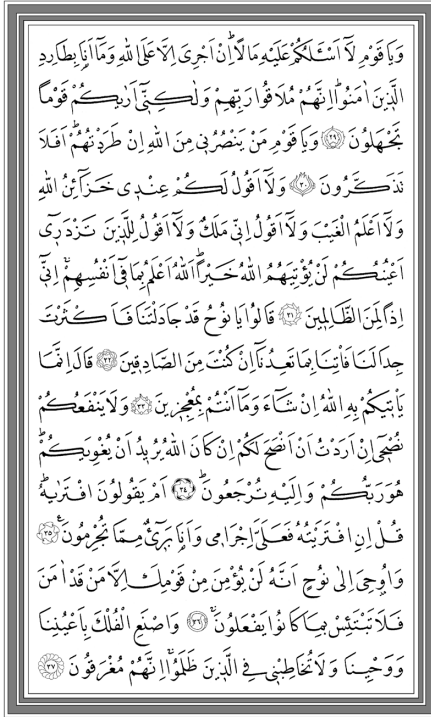 وَيَا قَوْمِ لَٓا اَسْـَٔلُكُمْ عَلَيْهِ مَالًاۜ اِنْ اَجْرِيَ اِلَّا عَلَى اللّٰهِ وَمَٓا اَنَا۬ بِطَارِدِ
الَّذ۪ينَ اٰمَنُواۜ اِنَّهُمْ مُلَاقُوا رَبِّهِمْ وَلٰكِنّ۪ٓي اَرٰيكُمْ قَوْمًا
تَجْهَلُونَ ﴿٢٩﴾ وَيَا قَوْمِ مَنْ يَنْصُرُن۪ي مِنَ اللّٰهِ اِنْ طَرَدْتُهُمْۜ اَفَلَا
تَذَكَّرُونَ ﴿٣٠﴾ وَلَٓا اَقُولُ لَكُمْ عِنْد۪ي خَزَٓائِنُ اللّٰهِ
وَلَٓا اَعْلَمُ الْغَيْبَ وَلَٓا اَقُولُ اِنّ۪ي مَلَكٌ وَلَٓا اَقُولُ لِلَّذ۪ينَ تَزْدَر۪ٓي
اَعْيُنُكُمْ لَنْ يُؤْتِيَهُمُ اللّٰهُ خَيْرًاۜ اَللّٰهُ اَعْلَمُ بِمَا ف۪ٓي اَنْفُسِهِمْۚ اِنّ۪ٓي
اِذًا لَمِنَ الظَّالِم۪ينَ ﴿٣١﴾ قَالُوا يَا نُوحُ قَدْ جَادَلْتَنَا فَاَكْثَرْتَ
جِدَالَنَا فَأْتِنَا بِمَا تَعِدُنَٓا اِنْ كُنْتَ مِنَ الصَّادِق۪ينَ ﴿٣٢﴾ قَالَ اِنَّمَا
يَأْت۪يكُمْ بِهِ اللّٰهُ اِنْ شَٓاءَ وَمَٓا اَنْتُمْ بِمُعْجِز۪ينَ ﴿٣٣﴾ وَلَا يَنْفَعُكُمْ
نُصْح۪ٓي اِنْ اَرَدْتُ اَنْ اَنْصَحَ لَكُمْ اِنْ كَانَ اللّٰهُ يُر۪يدُ اَنْ يُغْوِيَكُمْۜ
هُوَ رَبُّكُمْ وَاِلَيْهِ تُرْجَعُونَۜ ﴿٣٤﴾ اَمْ يَقُولُونَ افْتَرٰيهُۜ
قُلْ اِنِ افْتَرَيْتُهُ فَعَلَيَّ اِجْرَام۪ي وَاَنَا۬ بَر۪ٓيءٌ مِمَّا تُجْرِمُونَ۟ ﴿٣٥﴾
وَاُو۫حِيَ اِلٰى نُوحٍ اَنَّهُ لَنْ يُؤْمِنَ مِنْ قَوْمِكَ اِلَّا مَنْ قَدْ اٰمَنَ
فَلَا تَبْتَئِسْ بِمَا كَانُوا يَفْعَلُونَۚ ﴿٣٦﴾ وَاصْنَعِ الْفُلْكَ بِاَعْيُنِنَا
وَوَحْيِنَا وَلَا تُخَاطِبْن۪ي فِي الَّذ۪ينَ ظَلَمُواۚ اِنَّهُمْ مُغْرَقُونَ ﴿٣٧﴾